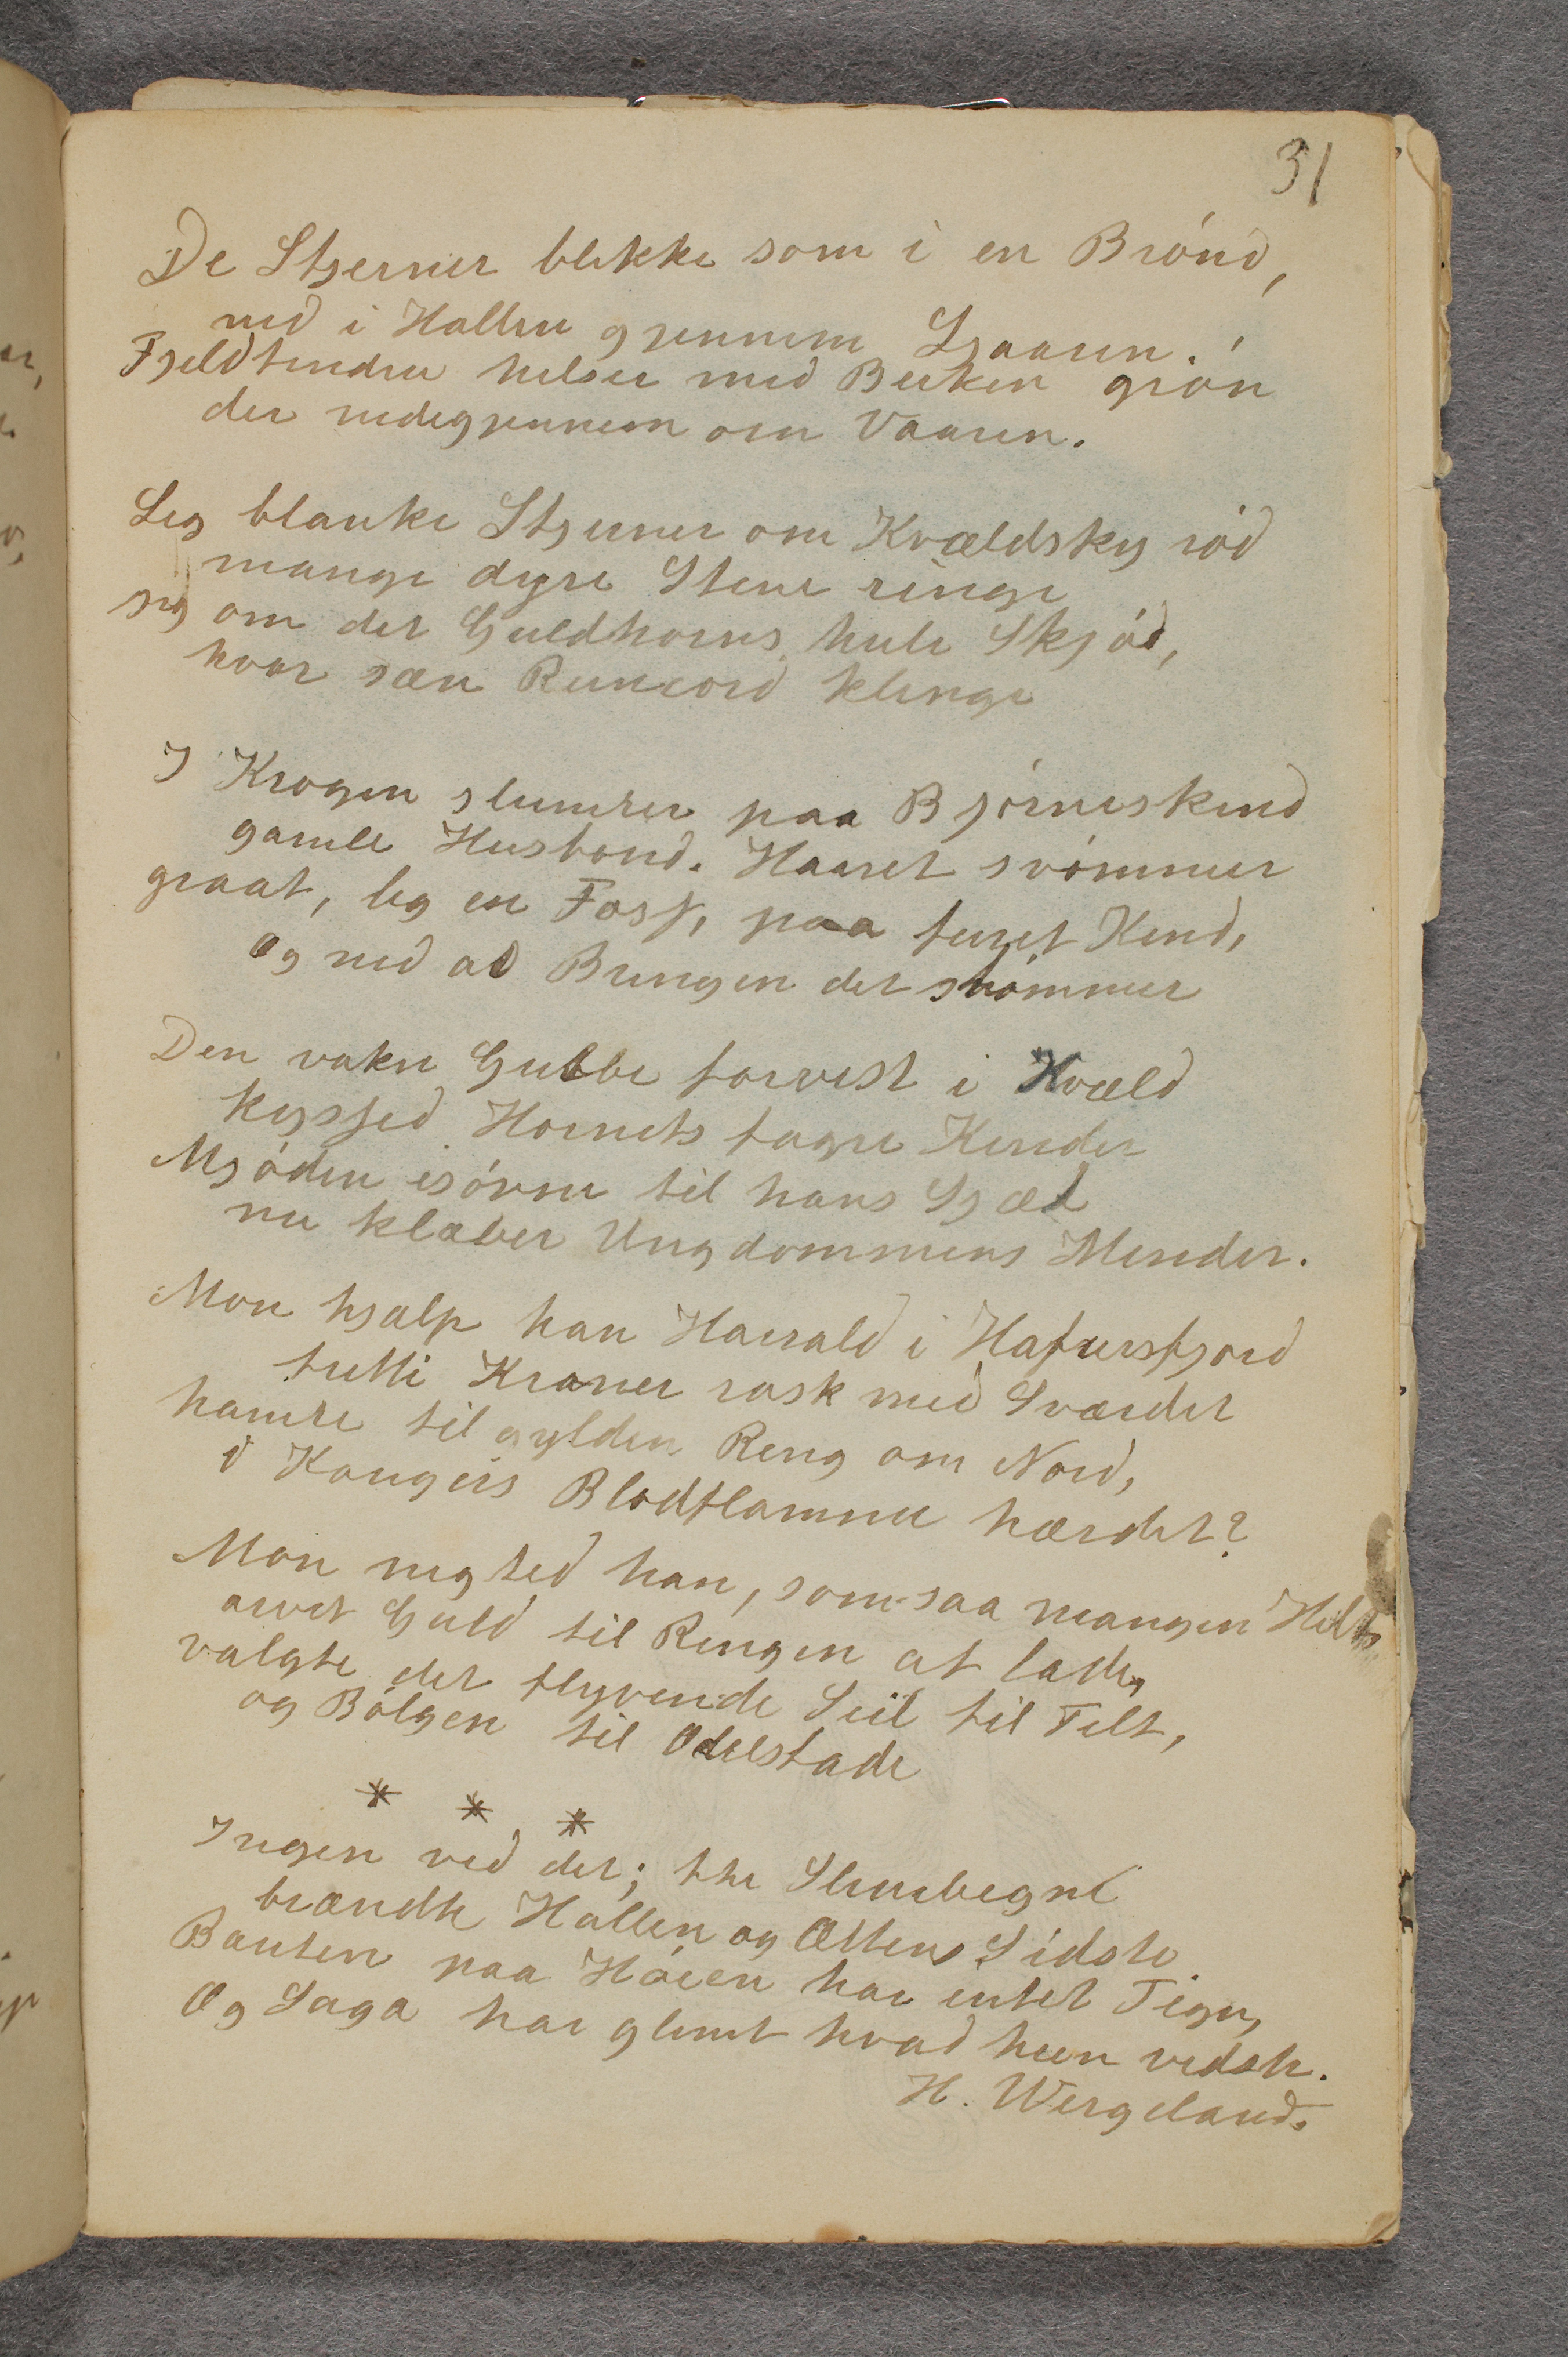 31
De Stjerner blikke som i en Brónd,
ned i Hallen gjennem Ljaaren.
Fjeldtinden hilser med Birken grón
der nedigjennem om Vaaren.
Lig blanke Stjerner om Kvældsky ród
mange dyre Stene ringe
sig om det Guldhorns hule Skjód,
hvor sæn Runeord klinge
I Krogen slumrer paa Bjórneskind
gamle Husbond. Haaret svómmer
graat, lig en Foss, paa furet Kind,
Og ned ad Bringen det strómmer
Den vakre Gubbe forvist i Kvæld
kyssed Hornets fagre Kinder
Mjóden isóvne til hans Sjæl
nu klæber Ungdommens Minder.
Mon hjalp han Harald i Hafursfjord
tretti Kroner rask med Sværdet
hamre til gylden Ring om Nord,
i Kongers Blodflamme hærdet?
Mon negted han, som saa mangen Helt,
arvet Guld til Ringen at lade,
valgte det flyvende Seil til Telt,
og Bólgen til Odelstade
* * *
Ingen ved det; thi Skurbegni
brændte Hallen og Ættens Sidste.
Bauten paa Hóien har intet Tegn,
Og Saga har glemt hvad hun vidste.
H. Wergeland.